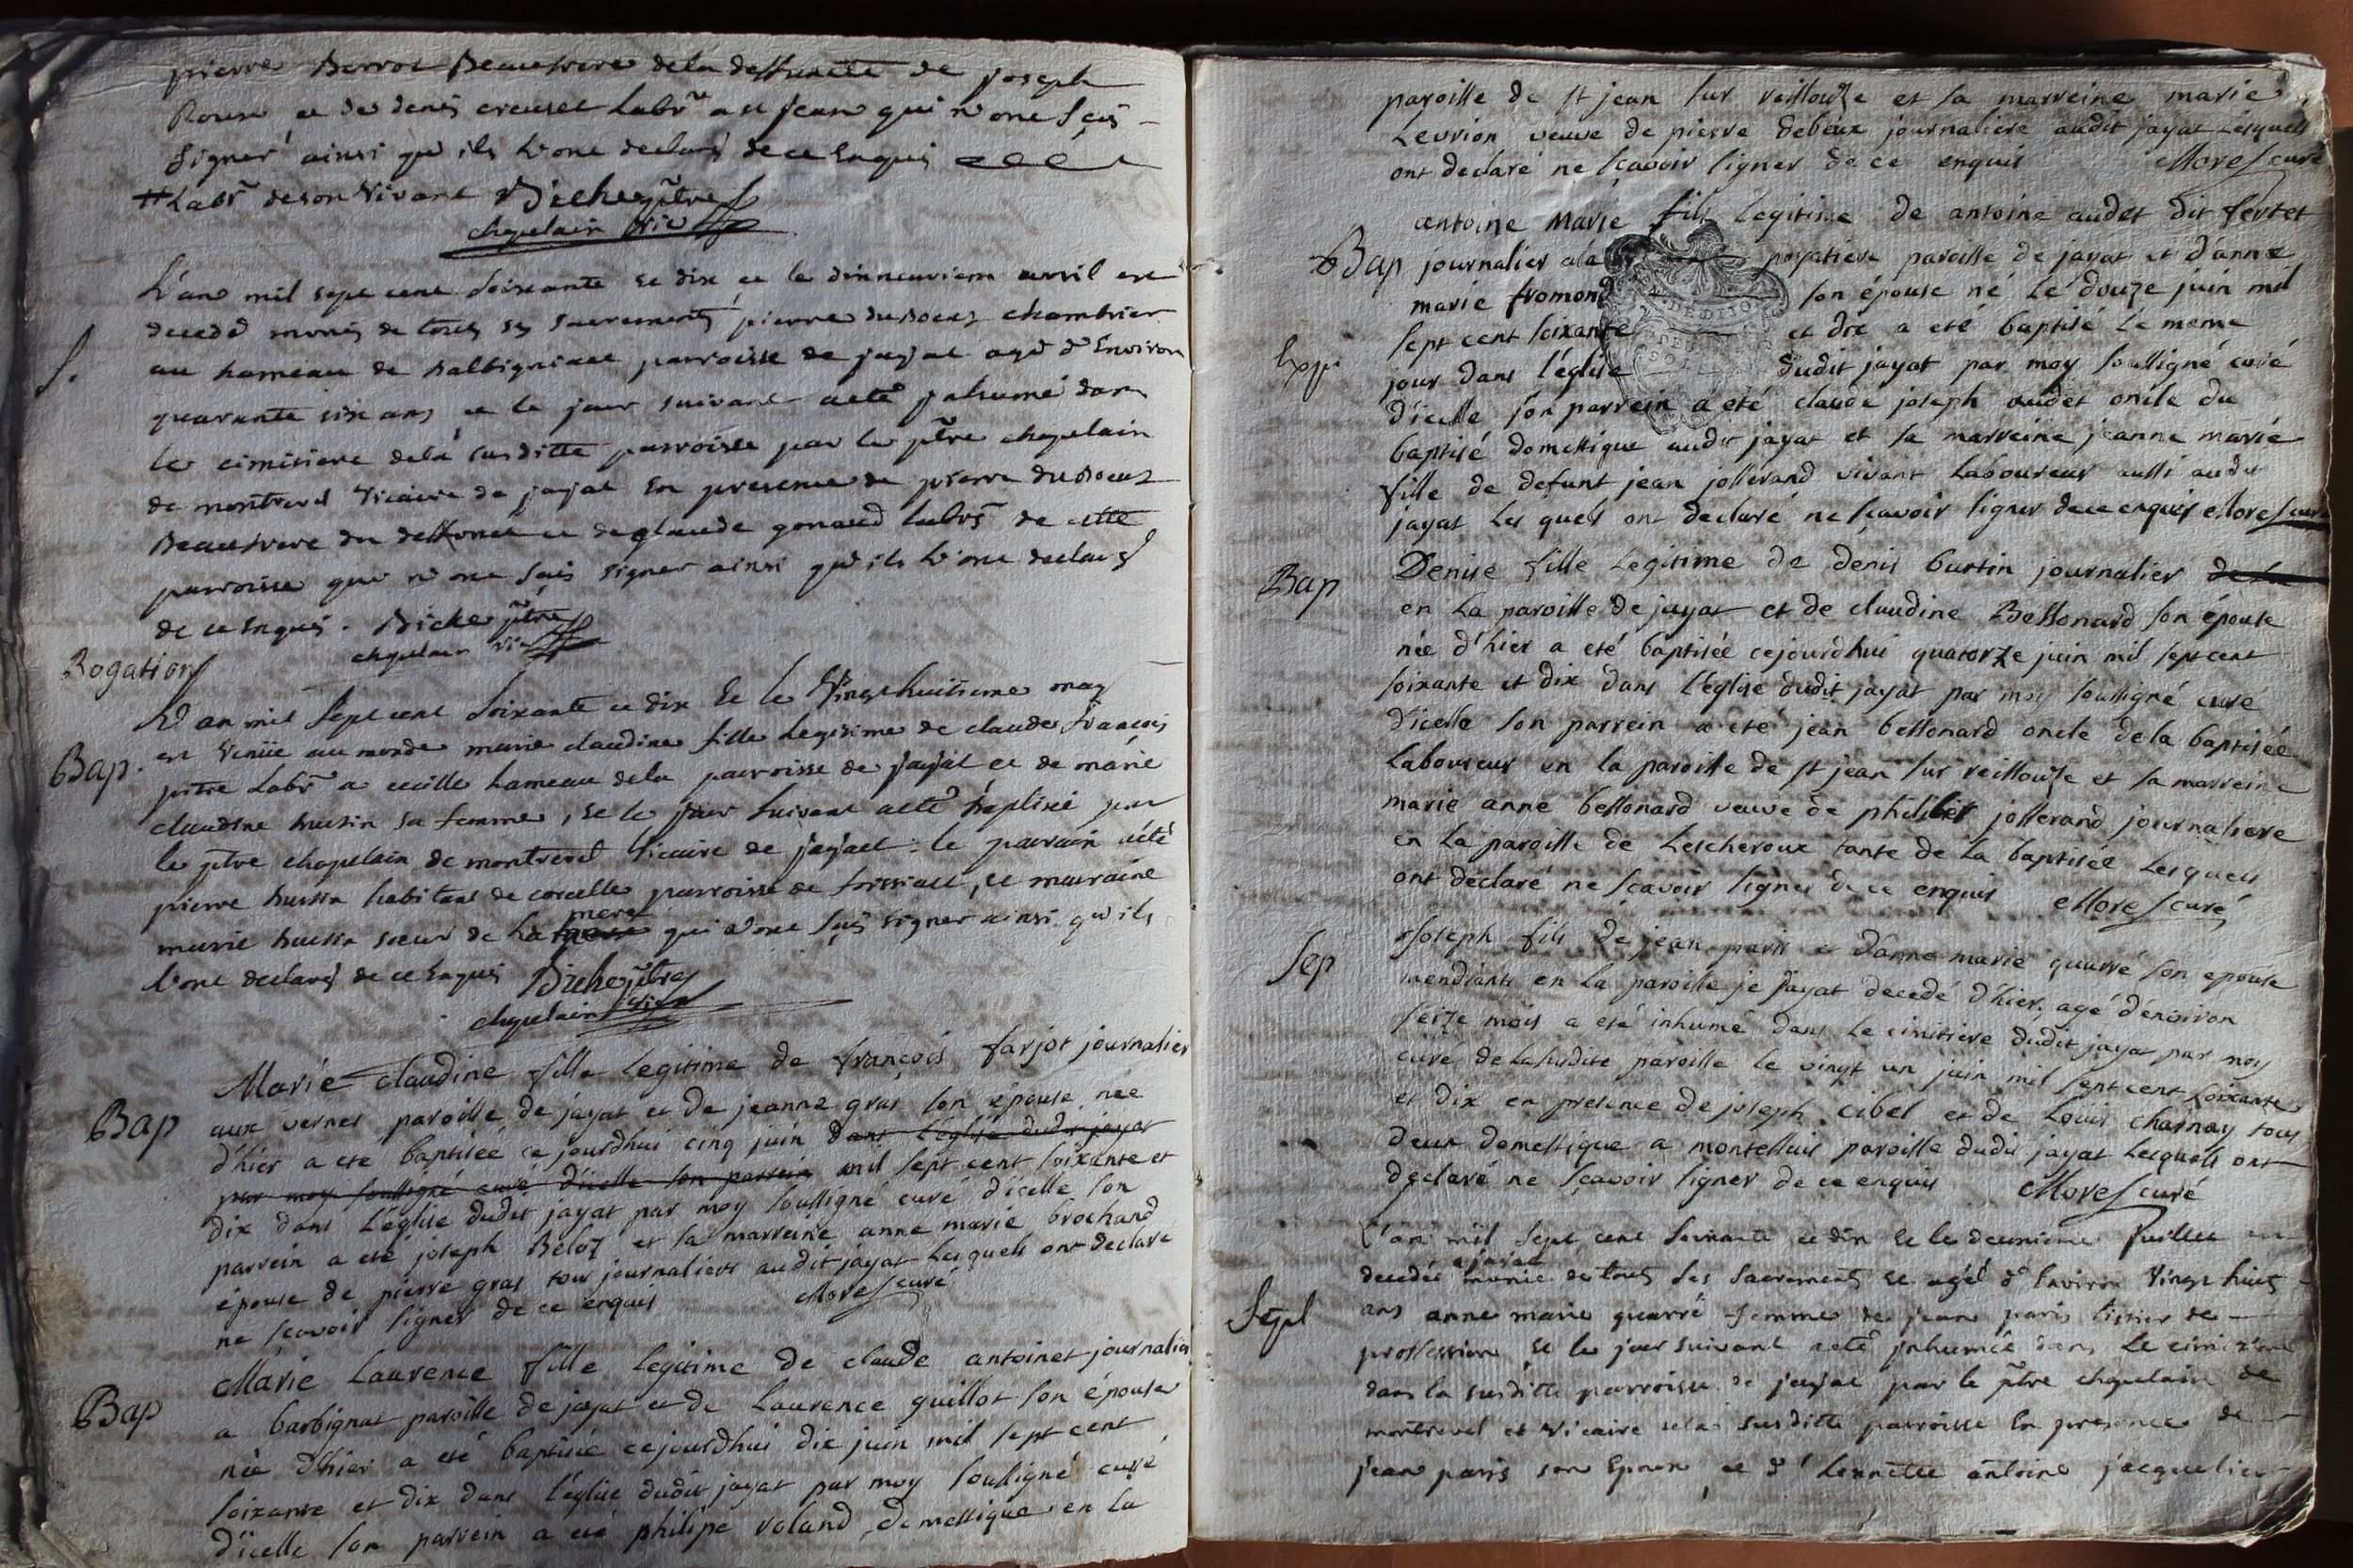 pierre Berrot Beaufrere dela deffuncte de joseph
Roux et de denis creuset Labr a st jean qui n'ont sçus
signer ainsi qu'ils l'ont declaré de ce enquis
Labr de son vivant Biche ptre
chapelain vic
L'an mil sept cent soixante et dix et le dixneuviem avril est
S.
decedé munis de tous ses sacrements pierre dubocet chambrier
au hameau de Balbigniact parroisse de jayat agé d'environ
quarante six ans, et le jour suivant a eté jnhumé dans
le cimitiere dela susditte parroisse par le ptre chapelain
de montrevel vicaire de jayat en presence de pierre dubocet
Beaufrere du deffunct et de glaude gonaud labr de cette
parroisse qui n'ont sçus signer ainsi qu'ils l'ont declaré
de ce enquis. Biche ptre
chapelain vic
Rogations
L'an mil sept cent soixante et dix et le vingthuitieme may
Bap.
est venüe au monde marie claudine fille legitime de claude françois
pitre labr a cecille hameau dela parroisse de jayat et de marie
claudine husson sa femme, et le jour suivant a eté baptisé par
le ptre chapelain de montrevel vicaire de jayact. le parrain a eté
pierre husson habitant de corcelle parroisse de foissiact, et marraine
marie husson soeur de la mere qui n'ont sçus signer ainsi qu'ils
l'ont declaré de ce enquis Biche ptre
chapelain vic
Marie claudine fille legitime de françois farjot journalier
Bap
aux vernes paroisse de jayat et de jeanne gras son épouse née
d'hier a eté baptisée ce jourdhui cinq juin dans l'église dudit jayat
par moy soussigné curé d'icelle son parrein mil sept cent soixante et
dix dans l'église dudit jayat par moy soussigné curé d'icelle son
parrein a eté joseph Beloz et sa marreine anne marie brochand
épouse de pierre gras tous journaliers audit jayat lesquels ont declaré
ne sçavoir signer de ce enquis Morel curé
Marie Laurence fille legitime de claude antoinet journalier
Bap
a barbignat paroisse de jayat et de Laurence guillot son épouse
née d'hier a eté baptisée cejourdhui dix juin mil sept cent
soixante et dix dans l'église dudit jayat par moy soussigné curé
d'icelle son parrein a eté philipe voland domestique en la
paroisse de st jean sur reissouze et sa marreine marie
Levrion veuve de pierre debeux journaliere audit jayat lesquels
ont declaré ne sçavoir signer de ce enquis Morel curé
antoine marie fils legitime de antoine audet dit fertet
Bap
journalier a la poyatiere paroisse de jayat et d'anne
marie fromond son épouse né le douze juin mil
sept cent soixante et dix a eté baptisé le meme
jour dans l'église dudit jayat par moy soussigné curé
d'icelle son parrein a eté claude joseph audet oncle du
baptisé domestique audit jayat et sa marreine jeanne marie
fille de defunt jean josserand vivant laboureur aussi audit
jayat les quels ont declaré ne sçavoir signer de ce enquis Morel curé
Bap
Denise fille legitime de denis burtin journalier de la
en la paroisse de jayat et de claudine Bessonard son épouse
née d'hier a eté baptisée cejourdhui quatorze juin mil sept cent
soixante et dix dans l'église dudit jayat par moy soussigné curé
d'icelle son parrein a eté jean bessonard oncle de la baptisée
laboureur en la paroisse de st jean sur reissouze et sa marreine
marie anne bessonard veuve de philibert josserand journaliere
en la paroisse de Lescheroux tante de la baptisée lesquels
ont declaré ne sçavoir signer de ce enquis Morel curé
Sep
joseph fils de jean paris et d'anne marie quarré son épouse
mendiants en la paroisse je jayat decedé d'hier agé d'environ
seize mois a eté inhumé dans le cimitiere dudit jayat par moy
curé de la susdite paroisse le vingt un juin mil sept cent soixante
et dix en presence de joseph cibel et de Louis charnay tous
deux domestique a montessuis paroisse dudit jayat lesquels ont
declaré ne sçavoir signer de ce enquis Morel curé
L'an mil sept cent soixante et dix et le deuxieme juillet est
a jayat
decedée munie de touts ses sacrements et agée d'environ vingt huit
Sepl
ans anne marie quarré femme de jean paris tissier de
proffession et le jour suivant a eté jnhumée dans le cimitiere
dans la susditte parroisse de jayat par le ptre chapelain de
montrevel et vicaire dela susditte parroisse en presence de
jean paris son epoux et d' antoine jacquelin